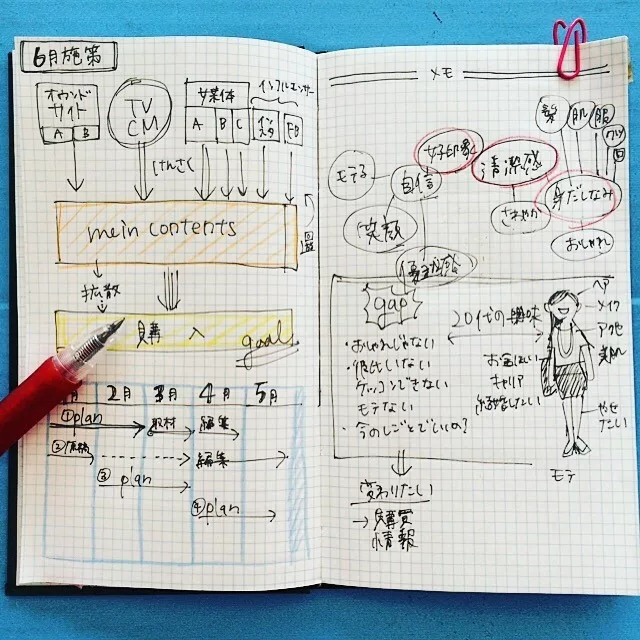 6月施策
オウンド
サイト
A B
TV
CM
媒体
A B C
インフルエンサー
FB
けんさく
mein contents
拡散
購入
goal
月 2月 3月 4月 5月
①plan
取材
編集
②
編集
③ plan
④plan
メモ
髪
肌
服
モテる
自信
女子印象
清潔感
身だしなみ
さわやか
おしゃれ
笑顔
優越感
gap
20代の興味
・おしゃれじゃない
・彼氏いない
・ケッコンできない
・モテない
・今のしごとでいいの?
お金ほしい
キャリア
結婚したい
ヘア
メイク
アクセ
美肌
やせ
たい
モテ
変わりたい
→購買
情報